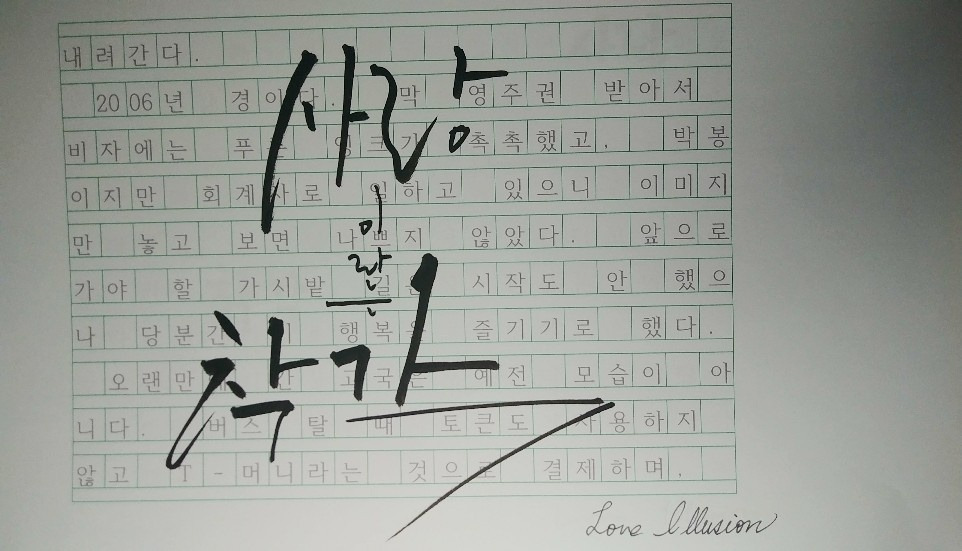 내려간다.
2006년 경이다. 막 영주권 받아서
비자에는 푸른 잉크가 촉촉했고, 박봉
이지만 회계사로 일하고 있으니 이미지
만 놓고 보면 나쁘지 않았다. 앞으로
가야 할 가시밭 길은 시작도 안 했으
나 당분간 행복을 즐기기로 했다.
오랜만에 간 고국은 예전 모습이 아
니다. 버스 탈 때 토큰도 사용하지
않고 T-머니라는 것으로 결제하며,
사랑
이라는
착각
Love Illusion